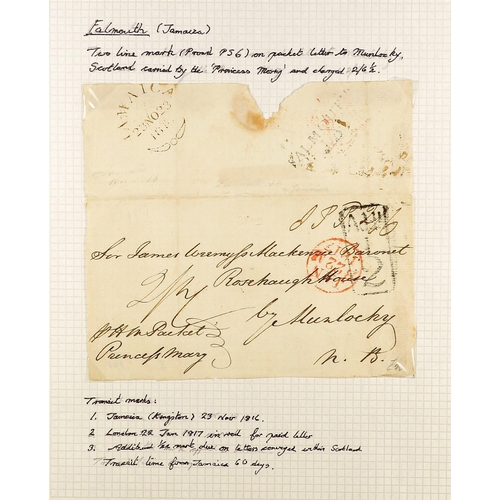 Falmouth (Jamaica)
Two line mark (Proud PS6) on packet letter to Munlocky,
Scotland carried by the 'Princess Mary' and charged 2/6½.
JAMAICA
23 NO 23
FALMOUTH
Sir James Wemyss Mackenzie Baronet
Rosehaugh House
by Munlochy
N. B.
p H M Packet
Princess Mary
Transit marks:
1. Jamaica (Kingston) 23 Nov 1816.
2 London 22 Jan 1817 in red for paid letter
3. Additional ½d mark due on letters conveyed within Scotland
Transit time from Jamaica 60 days.